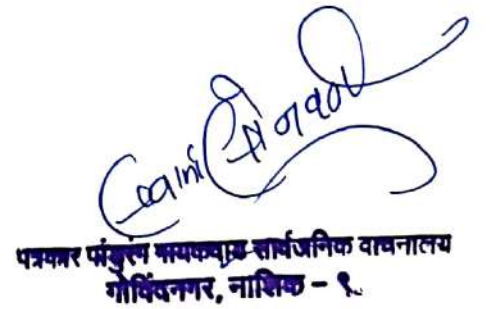 पत्रकार पांडुरंग गायकवाड सार्वजनिक वाचनालय
गोविंदनगर, नाशिक - ९.